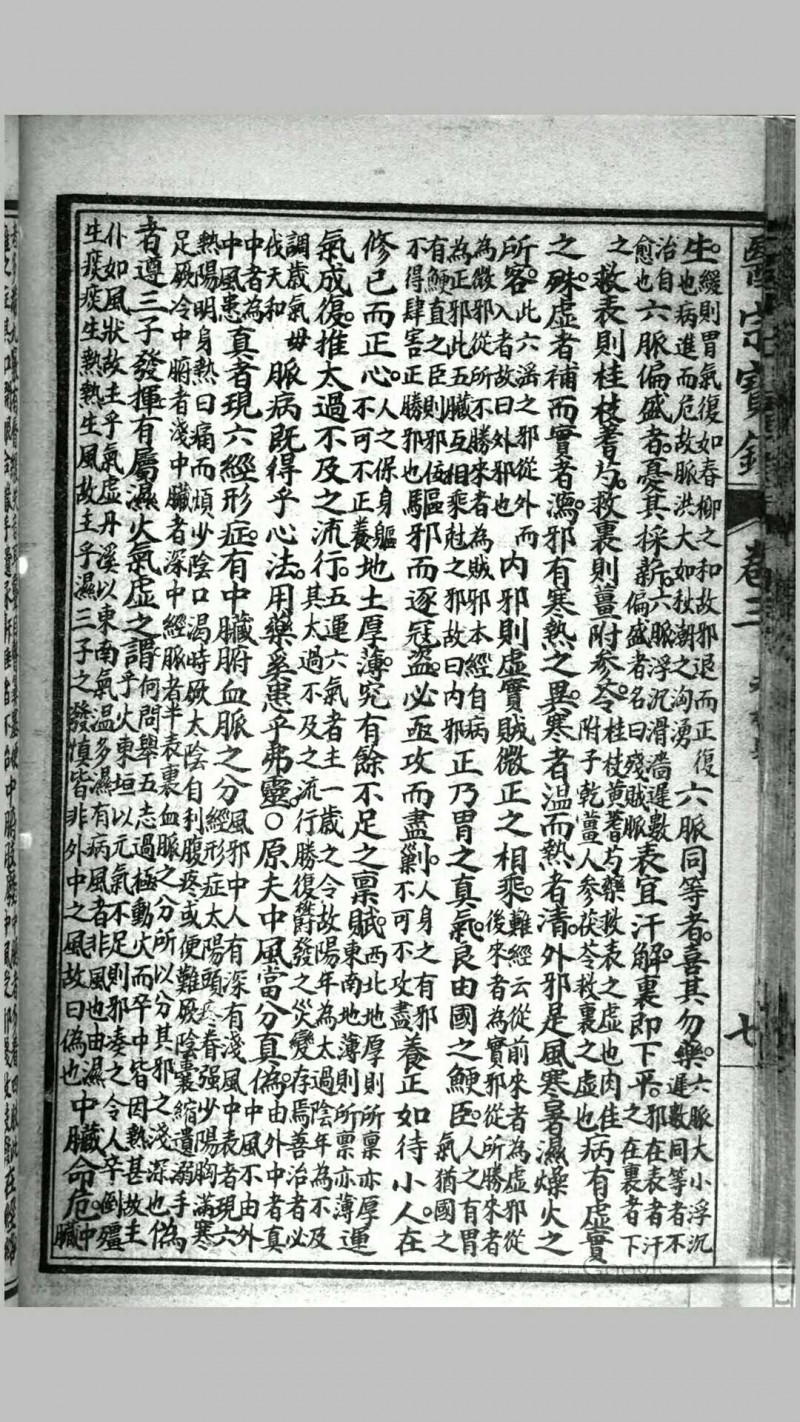 醫宗寶
卷三
七
生。
緩則胃氣復如春柳之和故邪退而正復
也病進而危故脈洪大如秋潮之洶湧
六脈同等者。喜其勿藥。
六脈大小浮沉
遲數同等者不
治自
愈也
六脈偏盛者。憂其採薪。
六脈浮沉滑濇遲數
偏盛者名曰殘賊脈
表宜汗解。裏即下平。
邪在表者汗
之在裏者下
之
救表則桂枝蓍芍。救裏則薑附參苓。
桂枝黄蓍芍藥救表之虛也肉桂
附子乾薑人參茯苓救裏之虛也
病有虛實
之殊虛者補而實者瀉。邪有寒熱之異。寒者溫而熱者清。外邪是風寒暑濕燥火之
所客。
此六滛之邪從外而
入者故曰外邪也
內邪則虛實賊微正之相乘。
難經云從前來者為虛邪從
後來者為實邪從所勝來者
為微邪從所不勝來者為賊邪本經自病
為正邪此五臟互相乘尅之邪故曰內邪
正乃胃之真氣良由國之鯁臣。
人之有胃
氣猶國之
有鯁直之臣則邪佞
不得肆害正勝邪也
驅邪而逐冠盜。必亟攻而盡剿。
人身之有邪
不可不攻盡
養正如待小人。在
修已而正心。
人之保身軀
不可不正養
地土厚薄。究有餘不足之稟賦。
西北地厚則所稟亦厚
東南地薄則所稟亦薄
運
氣成復。推太過不及之流行。
五運六氣者主一歲之令故陽年為太過陰年為不及
其太過不及之流行勝復欝發之災變存焉善治者必
調歲氣毋
伐天和
脈病既得乎心法。用藥奚患乎弗靈。○原夫中風當分真偽。
由外中者真
中風不由外
中者為
中風患
真者現六經形症。有中臟腑血脈之分。
風邪中人有深有淺風中表者現六
經形症太陽頭疼脊强少陽胸滿寒
熱陽明身熱目痛而煩少陰口渴時厥太陰自利腹疼或便難厥陰囊縮遺溺手
足厥冷中腑者淺中臟者深中經脈者半表裏血脈之分所以分其邪之淺深也
偽
者遵三子發揮有屬濕火氣虛之謂。
何問舉五志過極動火而卒中皆因熱甚故主
乎火東垣以元氣不足則邪湊之令人卒倒殭
仆如風狀故主乎氣虛丹溪以東南氣溫多濕有病風者非風也由濕
生痰痰生熱熱生風故主乎濕三子之發慎皆非外中之風故曰偽也
中臟命危。
中
臟
Google